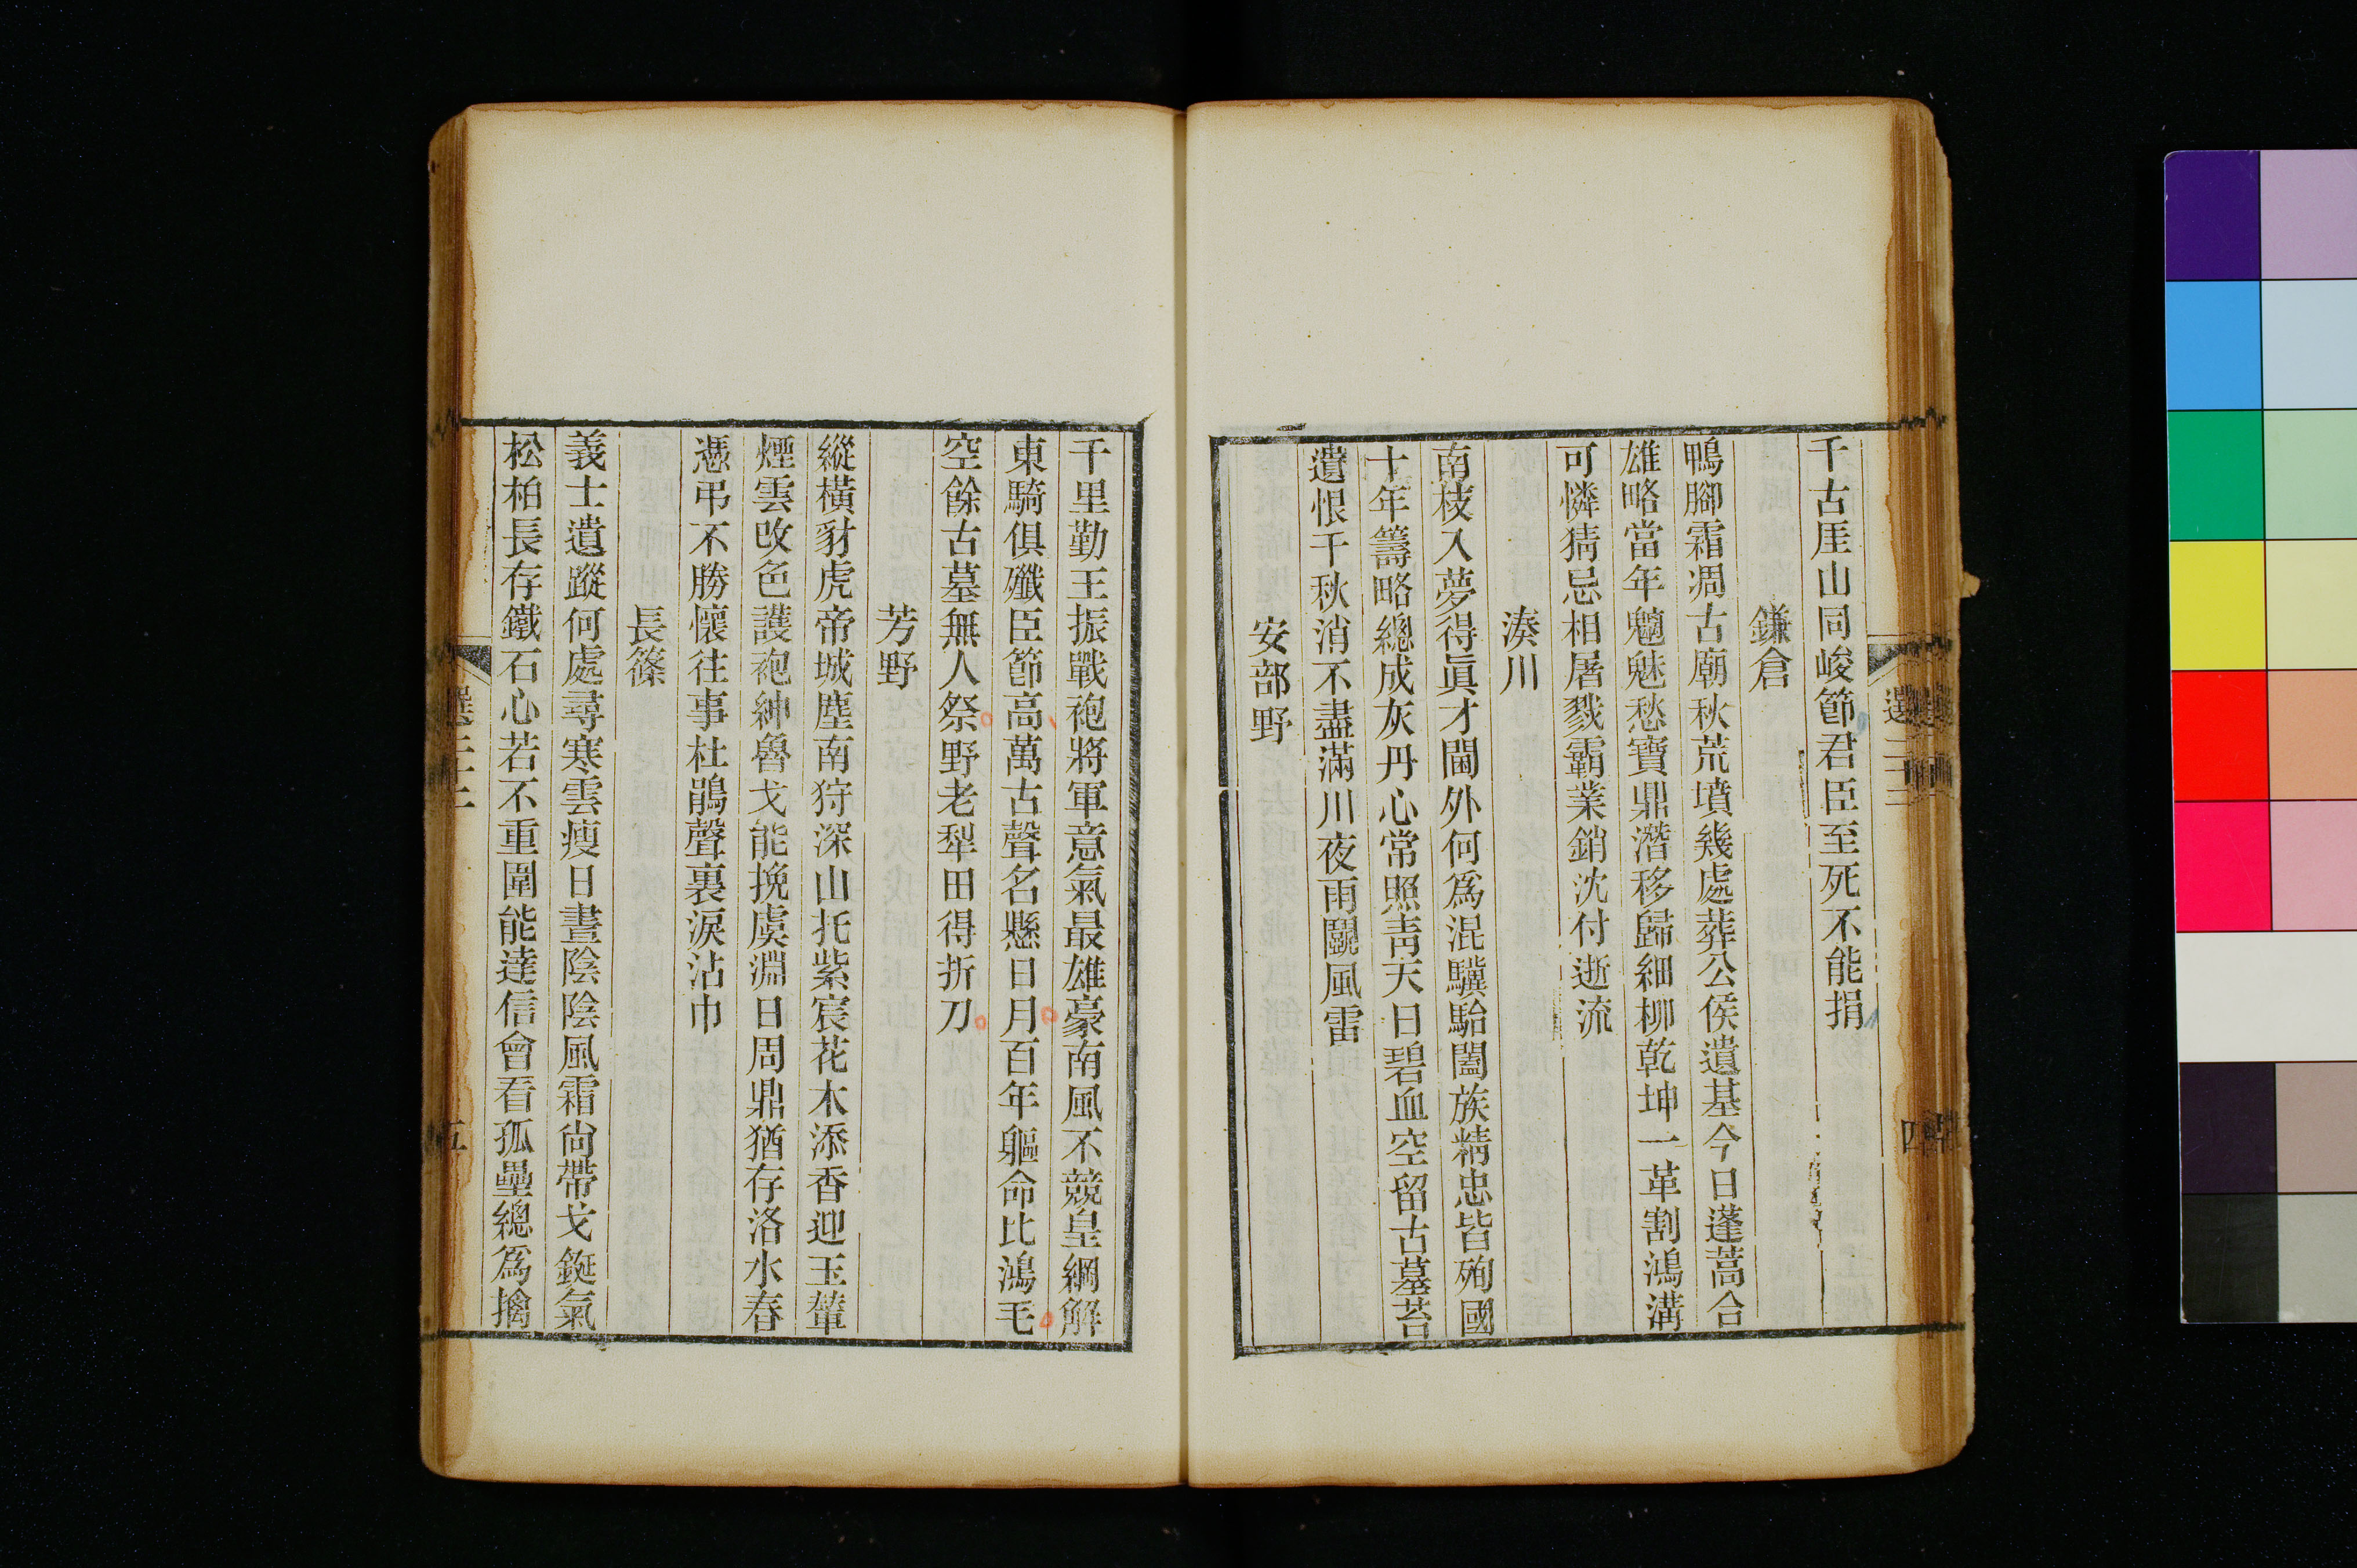 千古厓山同峻節君臣至死不能捐
鎌倉
鴨腳霜凋古廟秋荒墳幾處葬公侯遺基今日蓬蒿合
雄略當年魑魅愁寶鼎潛移歸細柳乾坤一革割鴻溝
可憐猜忌相屠戮霸業銷沈付逝流
湊川
南枝入夢得眞才閫外何爲混驥駘闔族精忠皆殉國
十年籌略總成灰丹心常照靑天日碧血空留古墓苔
遺恨千秋消不盡滿川夜雨鬭風雷
安部野
千里勤王振戰袍將軍意氣最雄豪南風不競皇綱解
東騎俱殲臣節高萬古聲名懸日月百年軀命比鴻毛
空餘古墓無人祭野老犁田得折刀
芳野
縱橫豺虎帝城塵南狩深山托紫宸花木添香迎玉輦
煙雲改色護袍紳魯戈能挽虞淵日周鼎猶存洛水春
憑弔不勝懷往事杜鵑聲裏淚沾巾
長篠
義士遺蹤何處尋寒雲瘦日晝陰陰風霜尙帶戈鋋氣
松柏長存鐵石心若不重圍能達信會看孤壘總爲擒
五